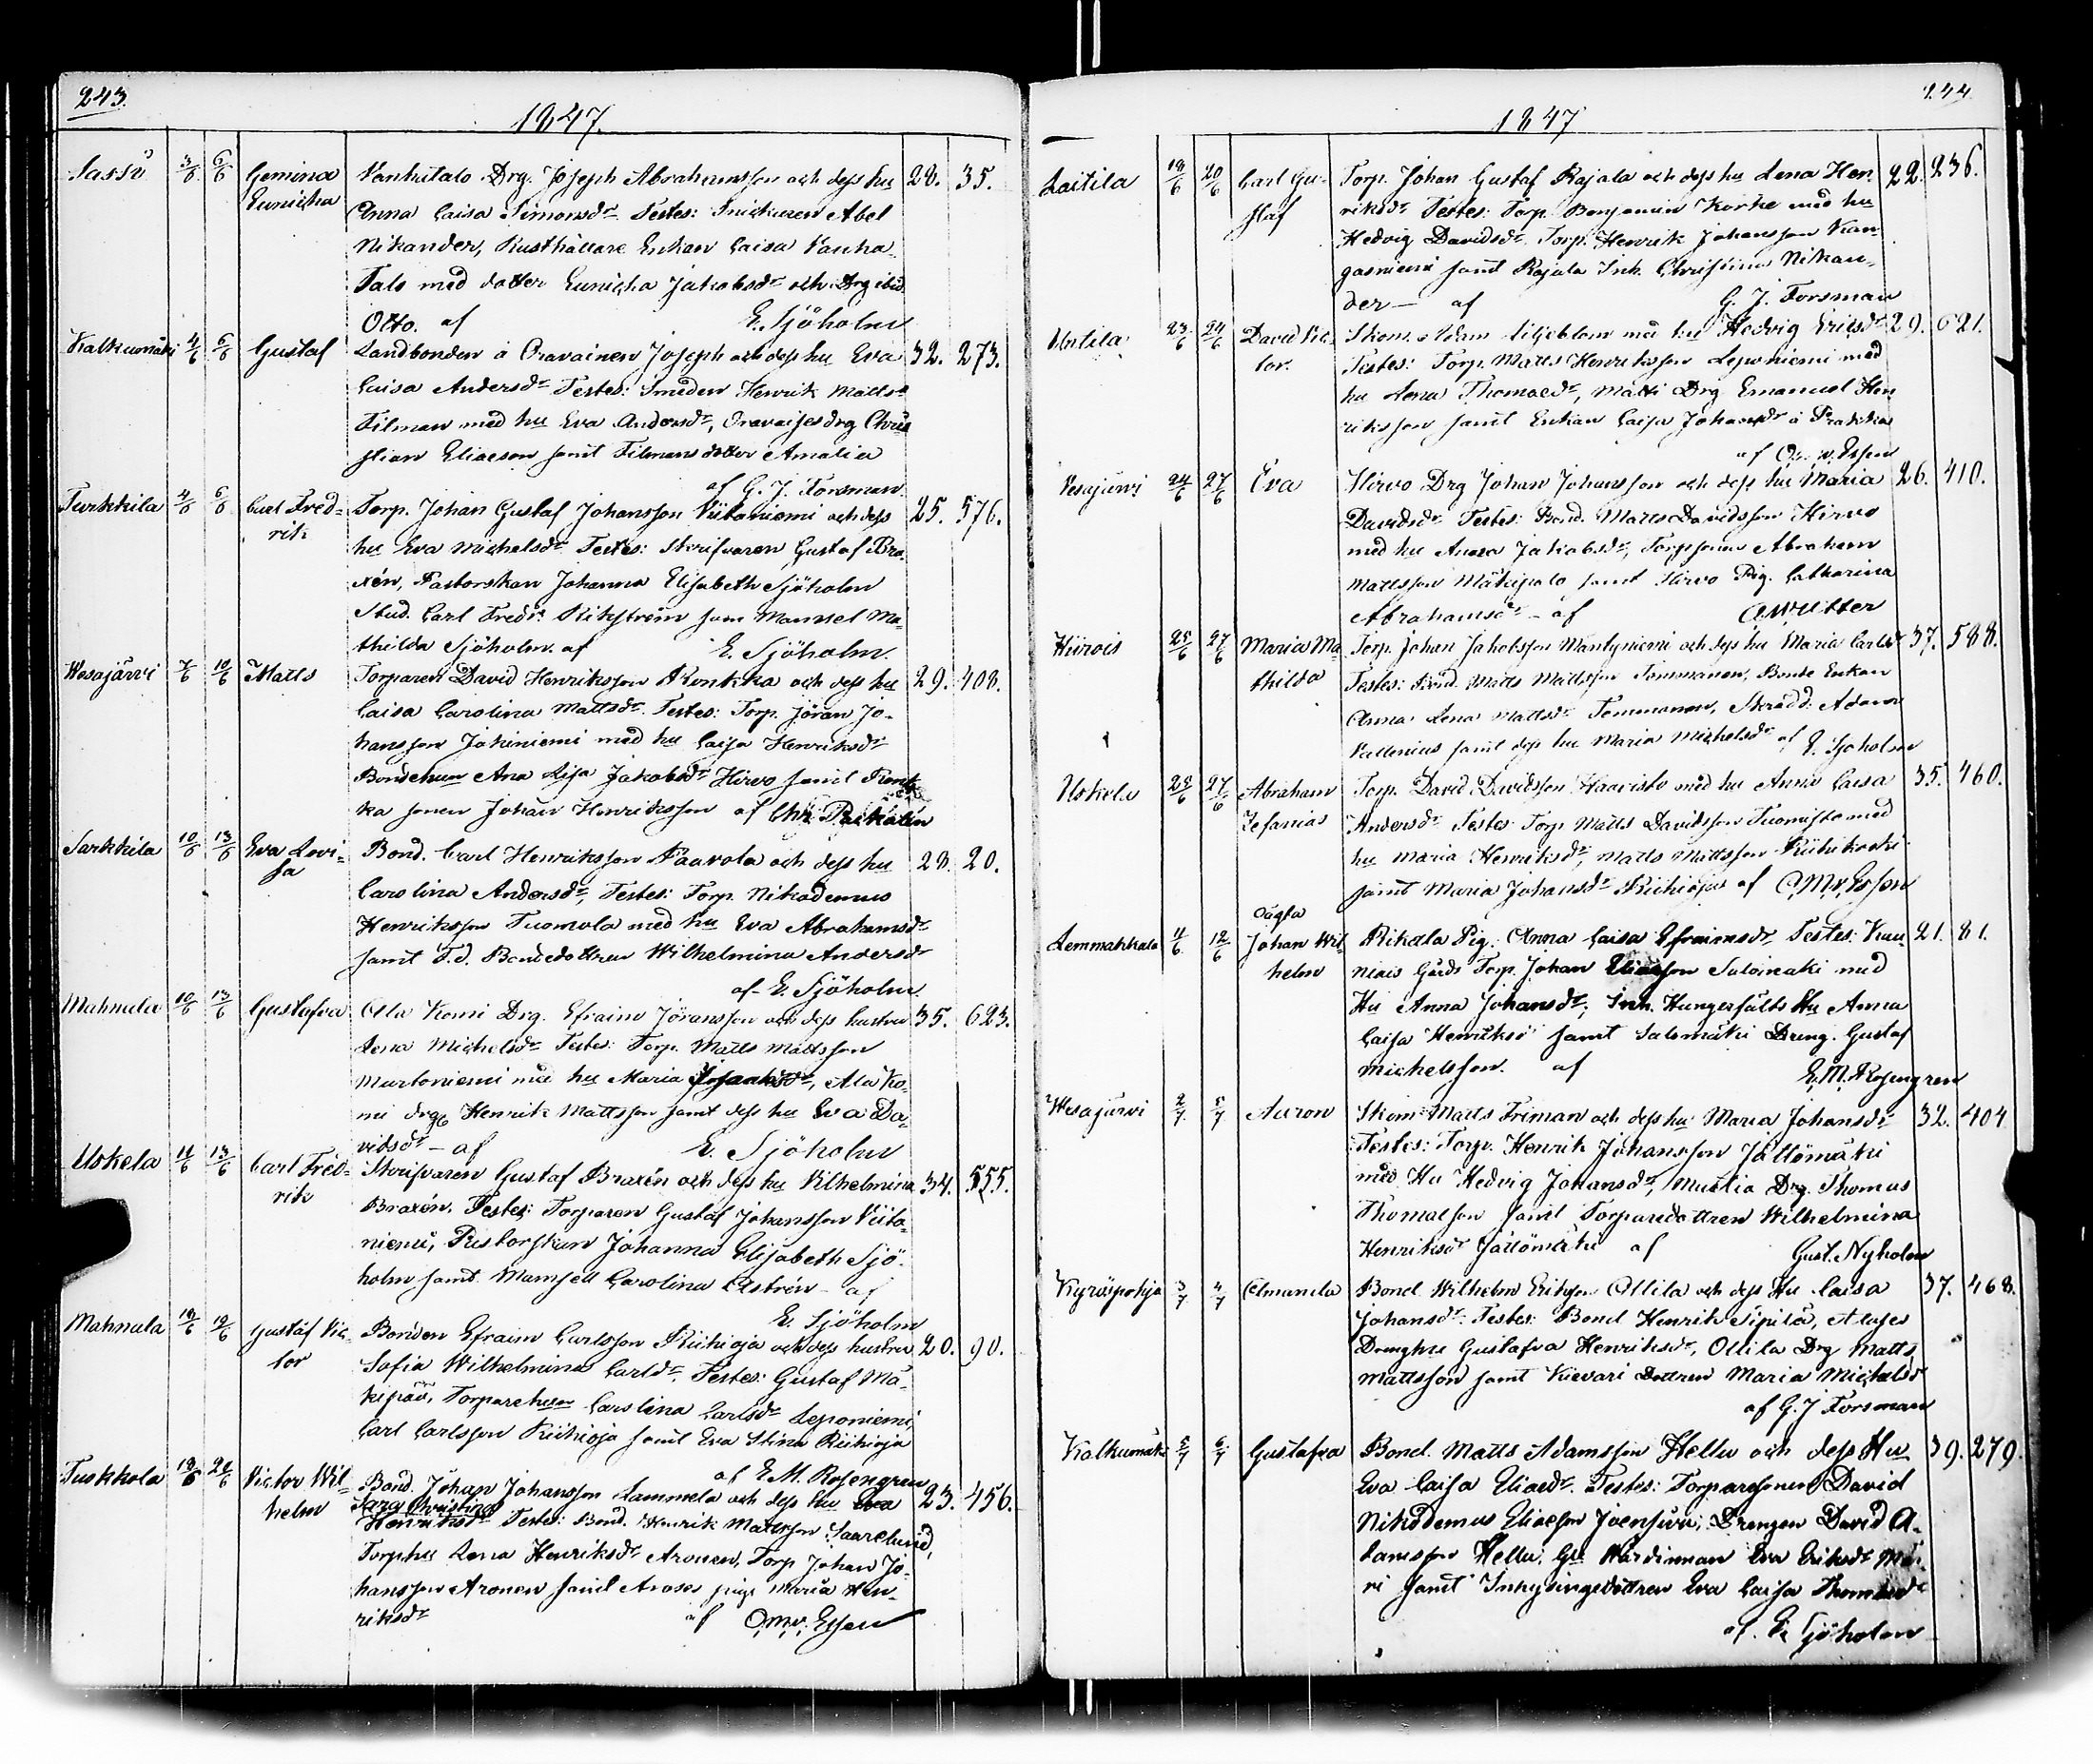 243.
1847.
Sassi 3/6 6/6 Gemina Vanhatalo Drg. Joseph Abrahamsson och dess hu 28. 35.
Eunicha Anna Caisa Simonsdr. Testes: Snickaren Abel
Nikander, Rusthållare Enkan Caisa Vanha
Talo med dotter Eunicha Jakobsdr och Drg ibid.
Otto. af E. Sjöholm
Kalkunmäki 4/6 6/6 Gustaf Landbonden å Oravainen Joseph och dess hu Eva 32. 273.
Caisa Andersdr Testes: Smeden Henrik Matts
Filman med hu Eva Andersdr, Oravaises drg Chri
stian Eliaeson samt Filmans dotter Amalia
af G. J. Forsman.
Turkkila 4/6 6/6 Carl Fred- Torp. Johan Gustaf Johansson Viitaniemi och dess 25. 576.
rik hu Eva Michelsdr Testes: Skrifvaren Gustaf Bra
xén, Pastorskan Johanna Elisabeth Sjöholm
Stud. Carl Fredr. Rikström sam Mamsel Ma-
thilda Sjöholm. af E. Sjöholm.
Wesajärvi 7/6 10/6 Matts Torparen David Henriksson Ronkka och dess hu 29. 408.
Caisa Carolina Mattsdr. Testes: Torp. Jöran Jo-
hansson Jokiniemi med hu Caisa Henriksdr
Bondehun Ana Lisa Jakobsdr Hirvo samt Ronk
ka sonen Johan Henriksson af Chr.
Sarkkila 10/6 13/6 Eva Lovi- Bond. Carl Henriksson Paavola och dess hu 28. 20.
sa Carolina Andersdr, Testes: Torp. Nikodemus
Henriksson Tuomola med hu Eva Abrahamsdr
samt F.d. Bondedottren Wilhelmina Andersdr
af E. Sjöholm
Mahnala 10/6 13/6 Gustafva Ala Komi Drg. Efraim Jöransson och dess hustru 35. 623.
Lena Michelsdr Testes: Torp. Matts Mattsson
Murtoniemi med hu Maria Josaksdr, Ala Ko-
mi drg Henrik Mattsson samt dess hu Eva Da-
vidsdr - af E. Sjöholm
Uskela 11/6 13/6 Carl Fred- Skrifvaren Gustaf Braxén och dess hu Vilhelmina 34. 555.
rik Braxén. Testes: Torparen Gustaf Johansson Viita-
niemi, Pastorskan Johanna Elisabeth Sjö-
holm samt Mamsell Carolina Astrén - af
E. Sjöholm
Mahnala 18/6 19/6 Gustaf Vic- Bonden Efraim Carlsson Riihioja och dess hustru 20. 90.
tor Sofia Wilhelmina Carlsdr. Testes: Gustaf Mä-
kipää, Torparehun Carolina Carlsdr Leponiemi,
Carl Carlsson Riihioja samt Eva Stina Riihioja
af E. M. Rosengren
Tuokkola 18/6 21/6 Victor Wil- Bond. Johan Johansson Lammela och dess hu Eva 23. 456.
helm Sara Christina
Henriksdr Testes: Bond. Henrik Mattsson Saarelund,
Torphu Lena Henriksdr Aronen, Torp Johan Jo-
hansson Aronen samt Aroses piga Maria Hen-
riksdr af O.M.v. Essen
244
1847
Laitila 18/6 20/6 Carl Gu- Torp. Johan Gustaf Rajala och dess hu Lena Hen- 22. 236.
staf riksdr Testes: Torp. Benjamin Korke med hu
Hedvig Davidsdr. Torp. Henrik Johansson Kan-
gasniemi samt Rajala Inh. Christina Nikan-
der - af G. J. Forsman
Untila 23/6 24/6 David Vic- Skom. Adam Liljeblom må hu Hedvig Ericsdr 29. 621.
tor. Testes: Torp. Matts Henriksson Leponiemi med
hu Lena Thomaedr, Matti Drg Emanuel Hen
riksson samt Enkan Caisa Johansdr å Prakka
af O. v. Essen
Vesajärvi 24/6 27/6 Eva Hirvo Drg Johan Johansson och dess hu Maria 26. 410.
Davidsdr Testes: Bond. Matts Davidsson Hirvo
med hu Anna Jakobsdr, Torpsonen Abraham
Mattsson Mäkipalo samt Hirvo Pig. Catharina
Abrahamsdr - af A.W. Utter
Hiirois 25/6 27/6 Maria Ma- Torp. Johan Jakobsson Mäntyniemi och dess hu Maria Carlsdr 37. 588.
thilda Testes: Bond. Matts Mattsson Tommanen, Bonde Enkan
Anna Lena Mattsdr Tommanen, Skrädd. Adam
Vallenius samt dess hu Maria Michelsdr af E. Sjöholm
Uskela 25/6 27/6 Abraham Torp. David Davidsson Haavisto med hu Anna Caisa 35. 460.
Zefanias Andersdr Testes Torp Matts Davidsson Tuomisto med
hu Maria Henriksdr, Matts Mattsson Riihikoski
samt Maria Johansdr Riihioja af O.M.v. Essen
oägta
Lemmakkala 11/6 12/6 Johan Wil- Rikala Pig. Anna Caisa Efraimsdr Testes: Kau 21. 81.
helm niais Gårds Torp. Johan Eliasson Saloinaki med
Hu Anna Johansdr; Inh. Hungerfälts Hu Anna
Caisa Henriksd samt Salomäki Dreng. Gustaf
Michelsson. af E.M. Rosengren
Wesajärvi 2/7 5/7 Aaron Skom. Matts Friman och dess hu Maria Johansdr 32. 404
Testes: Torp. Henrik Johansson Jällömäki
med Hu Hedvig Johansdr, Mustia Drg. Thomas
Thomasson samt Torparedottren Wilhelmina
Henriksdr Jällömäki af Gust. Nyholm
Kyröspohja 3/7 4/7 Amanda Bond Wilhelm Eriksson Ollila och dess Hu Caisa 37. 468.
Johansdr. Testes: Bond Henrik Sipilä, Aluses
Drenghu Gustafva Henriksdr, Ollila Drg Matts
Mattsson samt Kievari Dottren Maria Michelsdr
af G. J Forsman
Kalkunmäki 5/7 6/7 Gustafva Bond. Matts Adamsson Hellu och dess Hu 39. 279.
Eva Caisa Eliaedr. Testes: Torparesonen David
Nikodemus Eliaeson Joensuu; Drengen David A-
damsson Hellu, Eva Eriksdr
ri samt Inhysingedottren Eva Caisa Thomaedr
af. E. Sjöholm